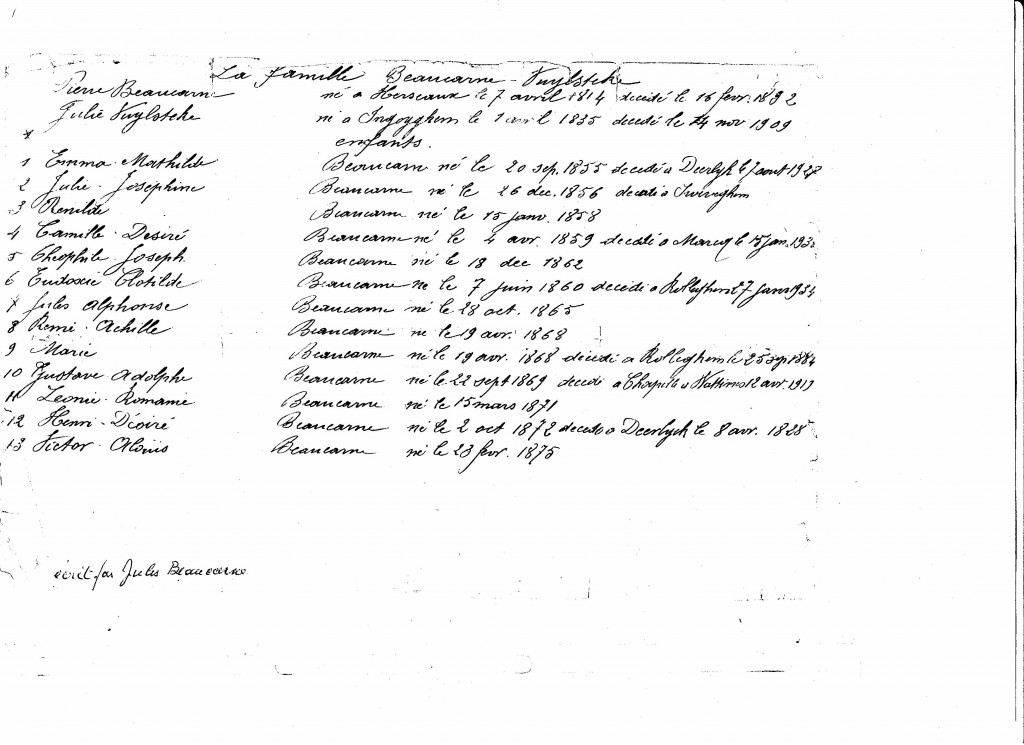 La famille Beaucarne - Vuylsteke
Pierre Beaucarne né a Herseaux le 7 avril 1814 decédé le 16 fevr. 1892
Julie Vuylsteke né a Ingoyghem le 1 avril 1835 decedé le 24 nov 1909
enfants.
1 Emma - Mathilde Beaucarne né le 20 sep. 1855 decedé a Deerlyk le 7 aout 1927
2 Julie - Josephine Beaucarne né le 26 dec. 1856 decedé a
3 Renilde Beaucarne né le 15 janv. 1858
4 Camille - Desiré Beaucarne né le 4 avr. 1859 decedé a Marcq le 15 jan. 193
5 Theophile Joseph Beaucarne né le 18 dec 1862
6 Eudoxie Clotilde Beaucarne né le 7 juin 1860 decedé a Rolleghem 7 janv 1934
7 Jules Alphonse Beaucarne né le 28 oct. 1865
8 Remi - Achille Beaucarne né le 19 avr. 1868
9 Marie Beaucarne né le 19 avr. 1868 decedé a Rolleghem le 25 sep 1884
10 Gustave Adolphe Beaucarne né le 22 sept 1869 decedé a Wattrelos 12 avr 191
11 Leonie - Romanie Beaucarne né le 15 mars 1871
12 Henri - Désiré Beaucarne né le 2 oct 1872 decedé a Deerlyck le 8 avr. 1828
13 Victor - Aloüis Beaucarne né le 23 fevr. 1875
écrit par Jules Beaucarne